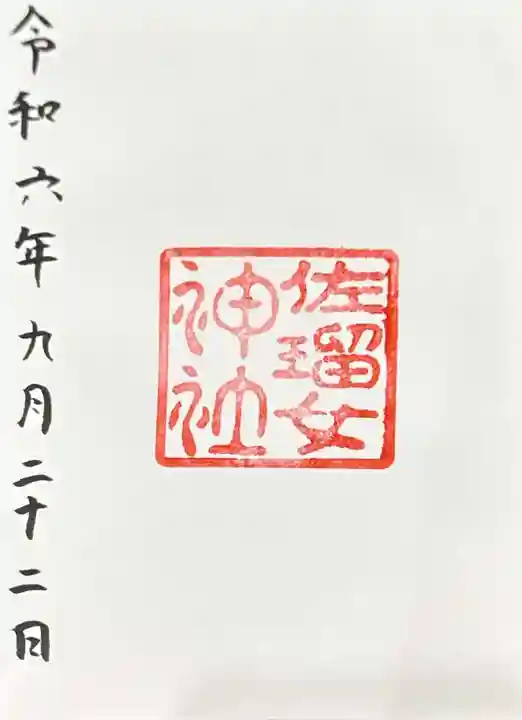 佐瑠女
神社
令和六年九月二十二日